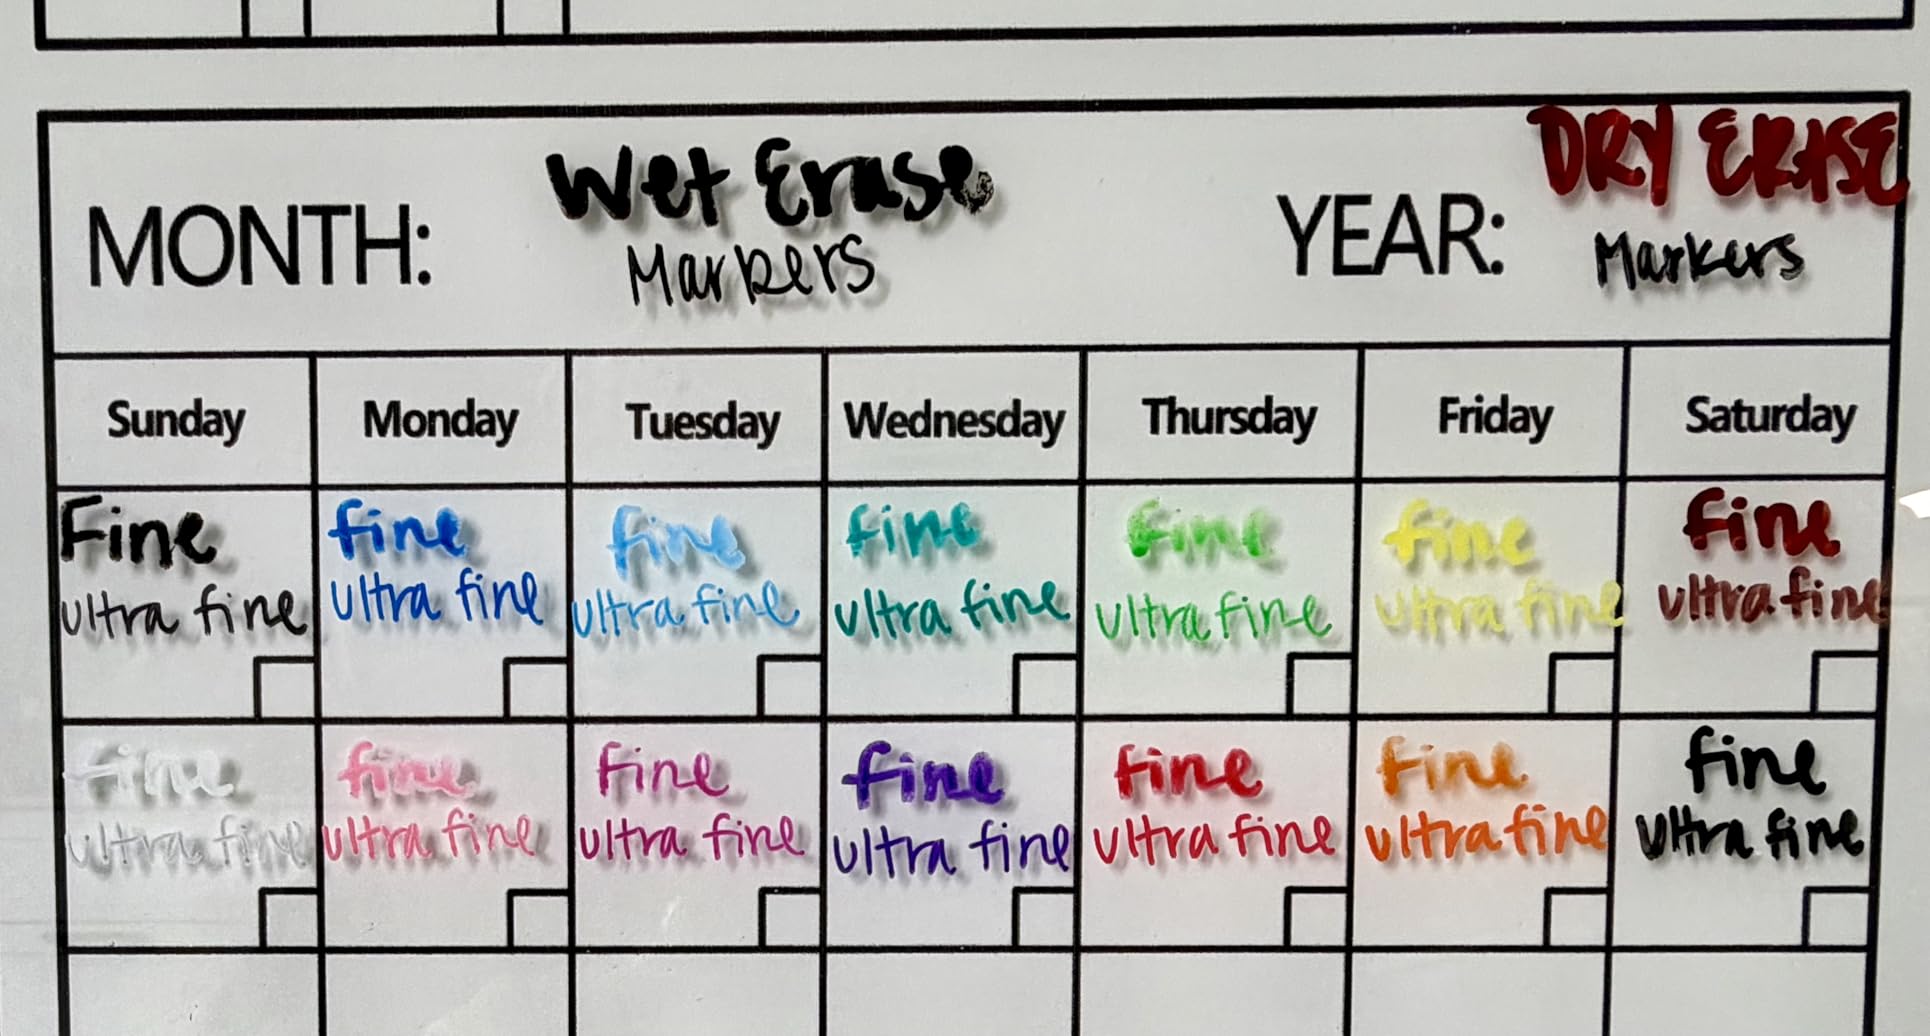 Wet Erase DRY ERASE
MONTH: Markers YEAR: Markers
Sunday Monday Tuesday Wednesday Thursday Friday Saturday
Fine fine fine fine fine fine fine
ultra fine ultra fine ultra fine ultra fine ultra fine ultra fine ultra fine
fine fine fine fine fine fine fine
ultra fine ultra fine ultra fine ultra fine ultra fine ultra fine ultra fine